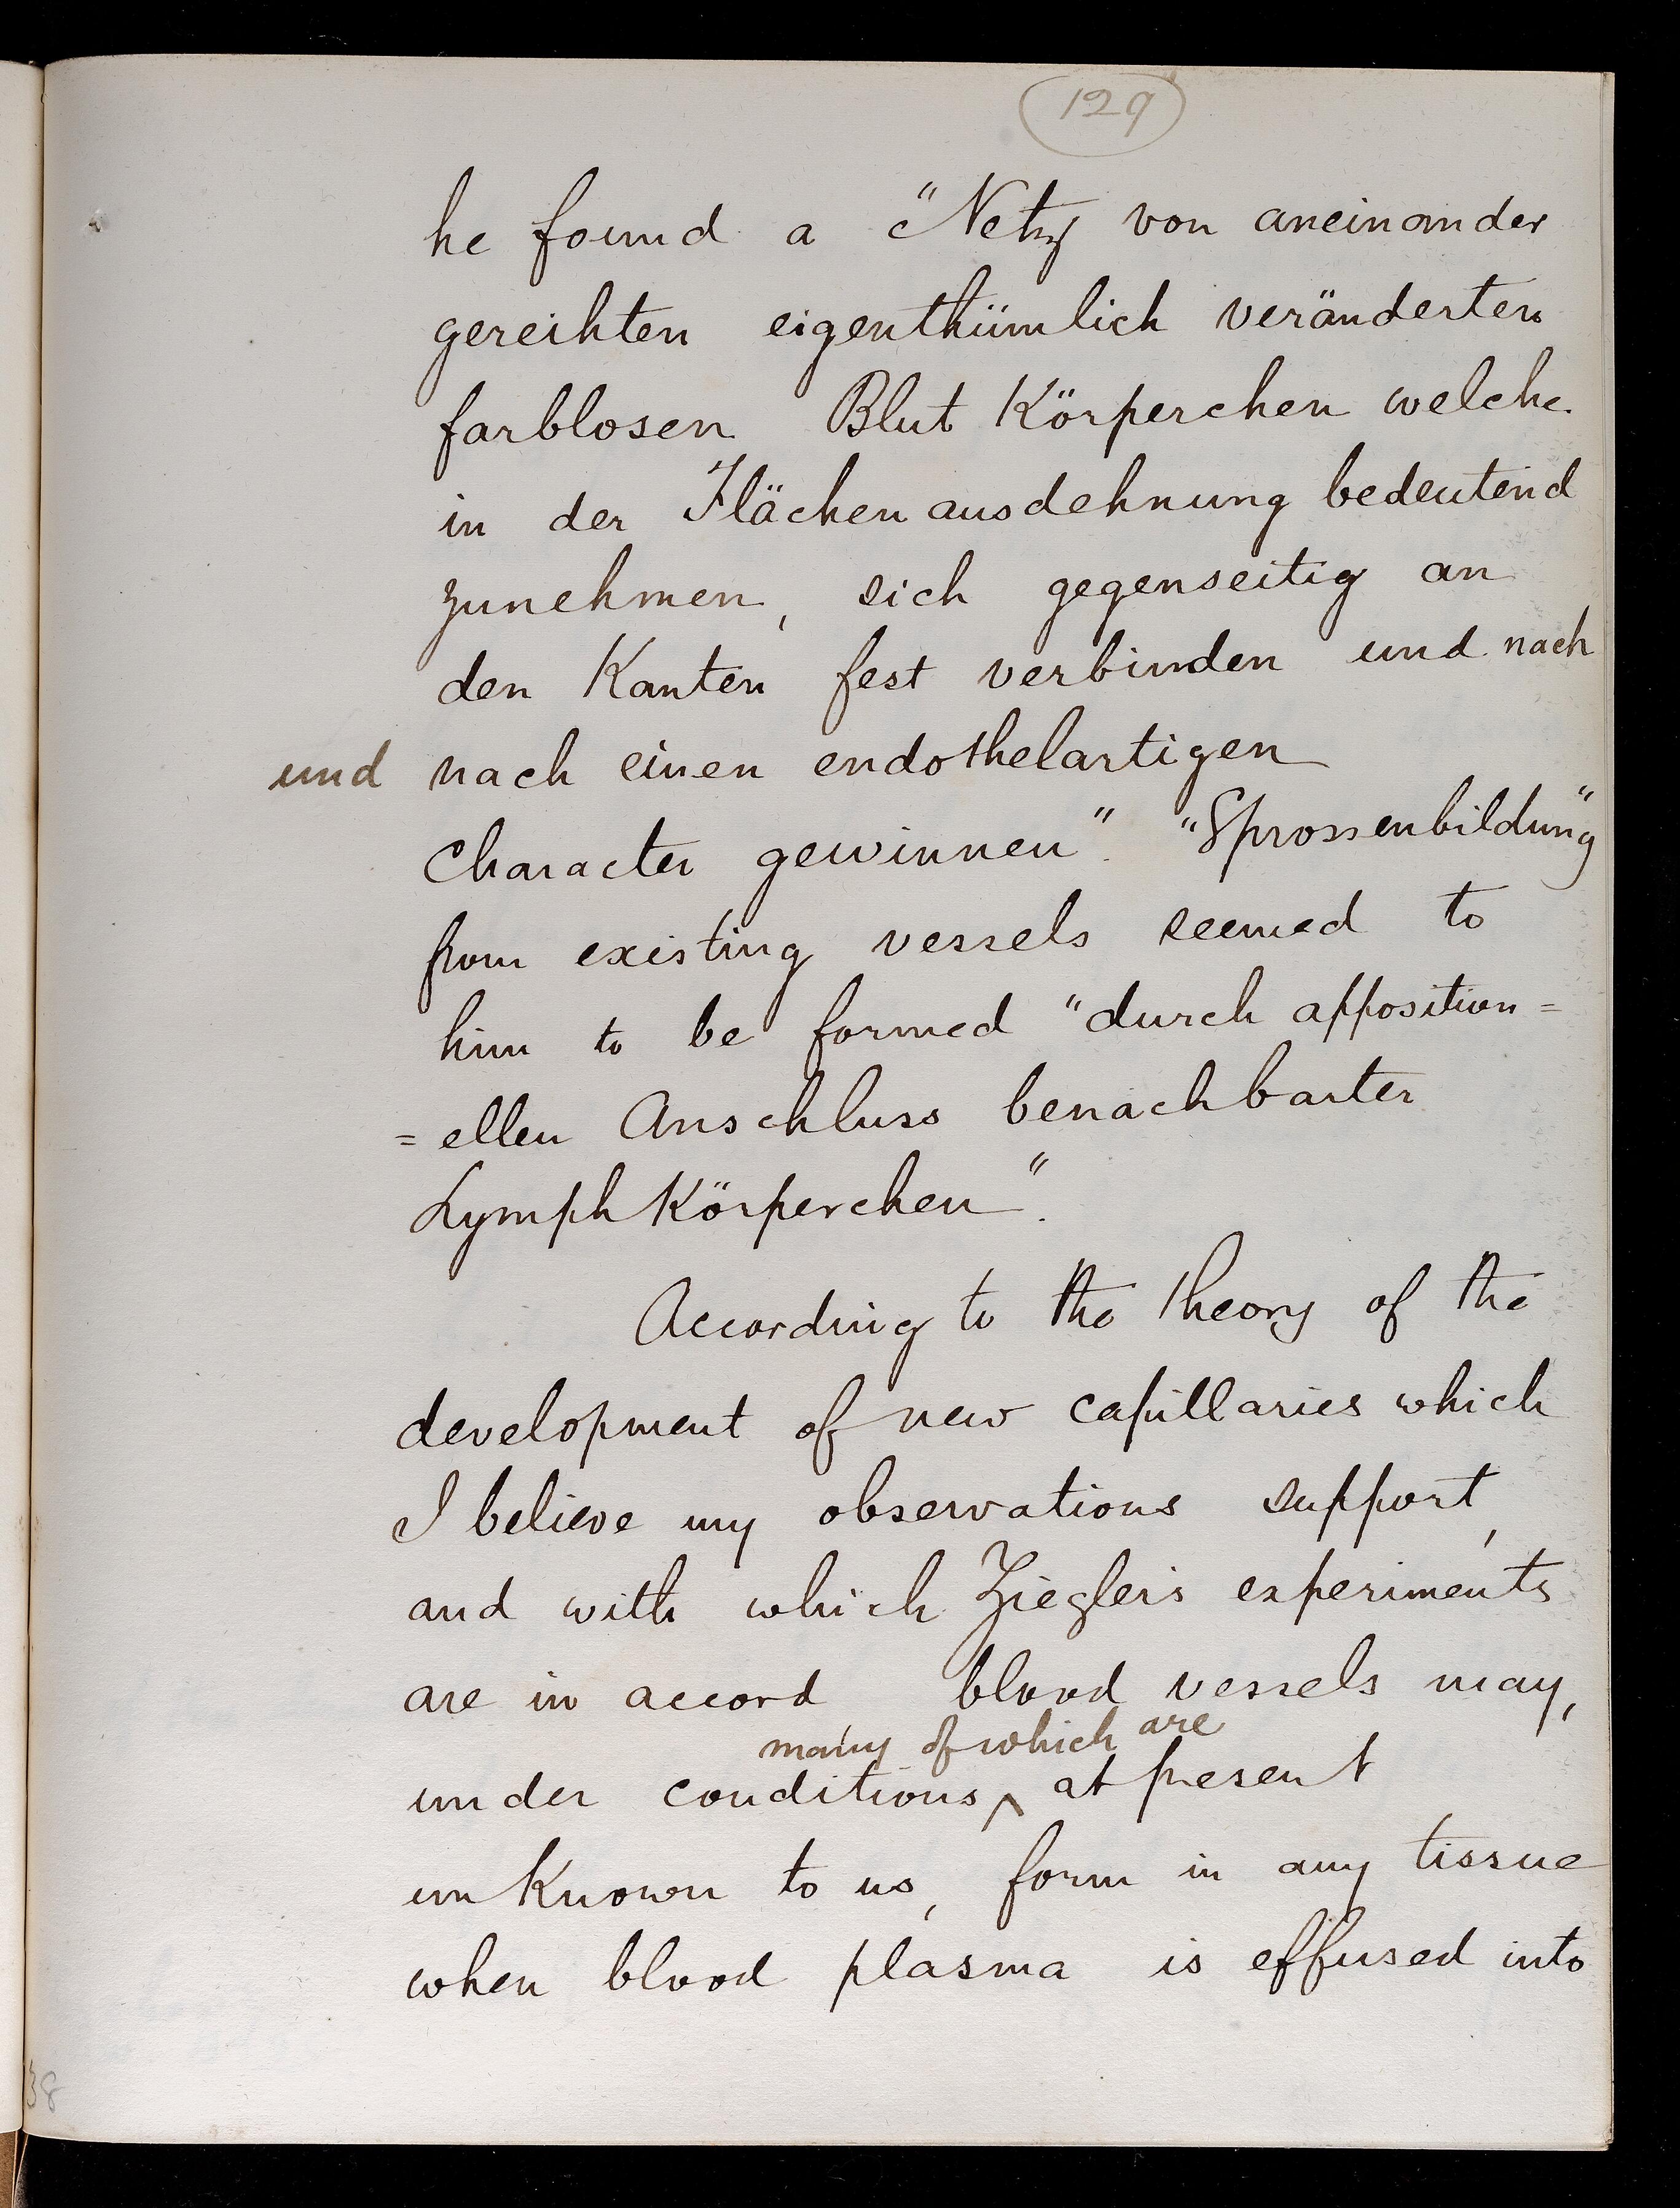 129
he found a "Netz von aneinander
gereihten eigenthümlich veränderten
farblosen Blut Körperchen welche
in der Flächenausdehnung bedeutend
zunehmen, sich gegenseitig an
den Kanten fest verbinden und nach
und nach einen endothelartigen
Character gewinnen". "Sprossenbildung"
from existing vessels seemed to
him to be formed "durch apposition=
=ellen Anschluss benachbarter
Lymph Körperchen".
According to the theory of the
development of new capillaries which
I believe my observations support,
and with which Ziegler's experiments
are in accord blood vessels may,
many of which are
under conditions ^ at present
unknown to us, form in any tissue
when blood plasma is effused into